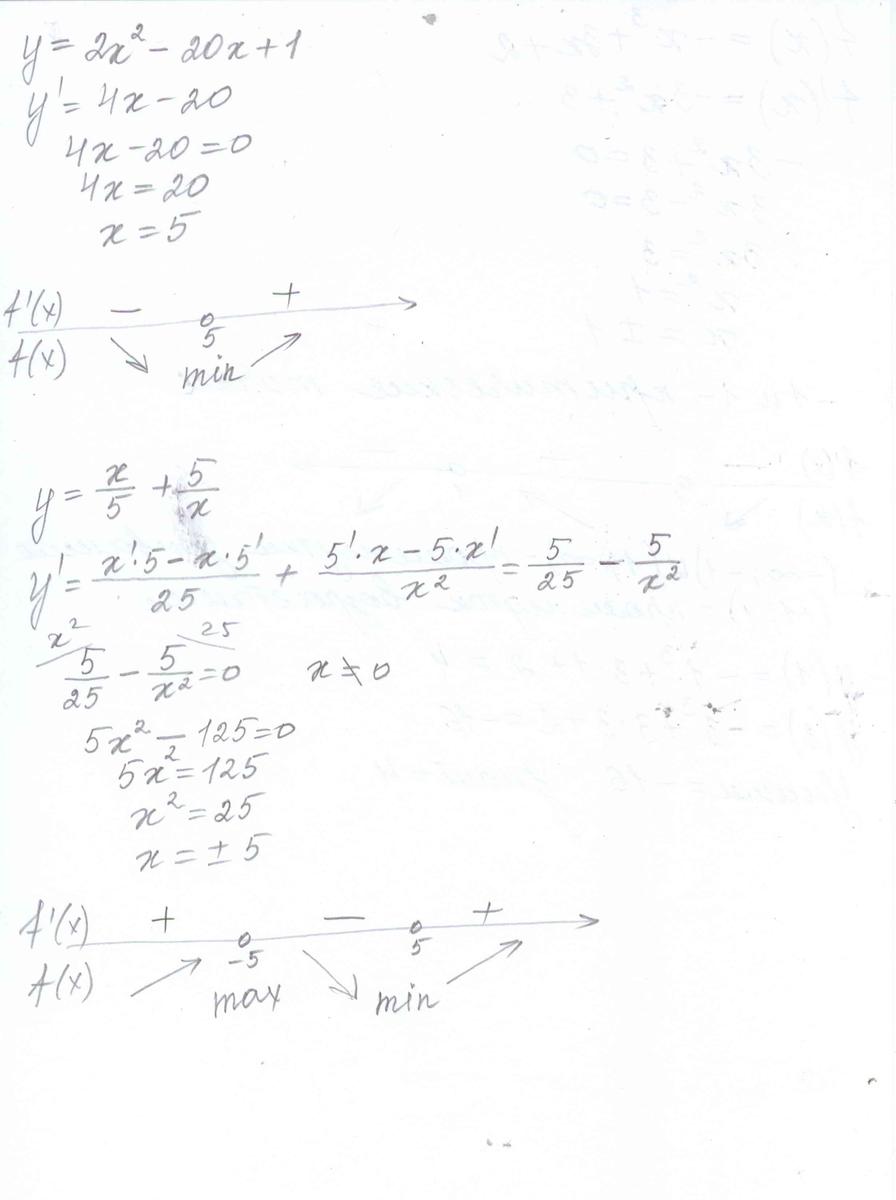 y = 2x² - 20x + 1
y' = 4x - 20
4x - 20 = 0
4x = 20
x = 5
f'(x) − +
5
f(x) ↘ min ↗
y = x/5 + 5/x
y' = (x'·5 - x·5')/25 + (5'·x - 5·x')/x² = 5/25 - 5/x²
x² 25
5/25 - 5/x² = 0 x ≠ 0
5x² - 125 = 0
5x² = 125
x² = 25
x = ± 5
f'(x) + − +
-5 5
f(x) ↗ max ↘ min ↗